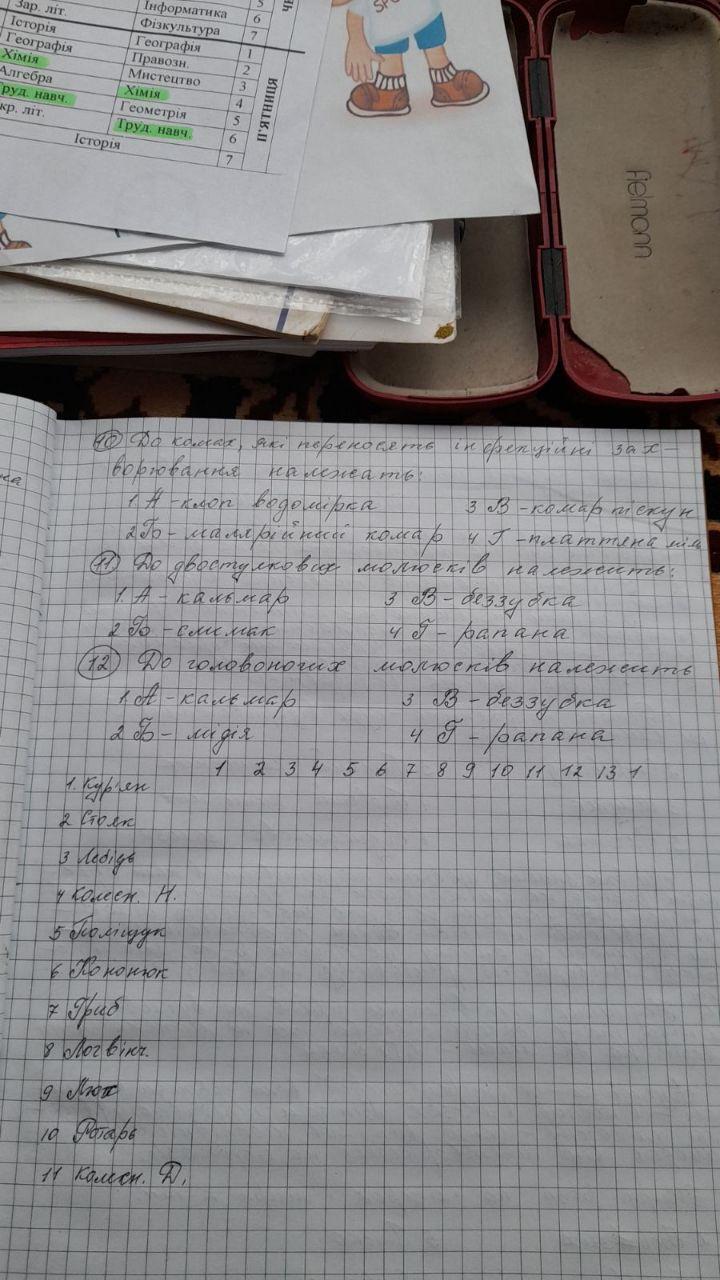 Зар. літ. Інформатика 5
Історія Фізкультура 6
7
Географія Географія 1
Хімія Правозн. 2
Алгебра Мистецтво 3
Труд. навч. Хімія 4
кр. літ. Геометрія 5
Труд. навч. 6
Історія 7
П'ЯТНИЦЯ
SPO
fielmann
10 До комах, які переносять інфекційні зах-
ворювання належать:
1 А - клоп водомірка 3 В - комар піскун
2 Б - малярійний комар 4 Г - платтяна міль
11 До двостулкових молюсків належить:
1. А - кальмар 3 В - беззубка
2 Б - слимак 4 Г - рапана
12 До головоногих молюсків належить
1 А - кальмар 3 В - беззубка
2 Б - мідія 4 Г - рапана
1 2 3 4 5 6 7 8 9 10 11 12 13 1
1. Кур'ян
2 Стояк
3 Лебідь
4 Колесн. Н.
5 Поліщук
6 Кононюк
7 Гриб
8 Логвінч.
9 Мюк
10 Ротарь
11 Колесн. Д.